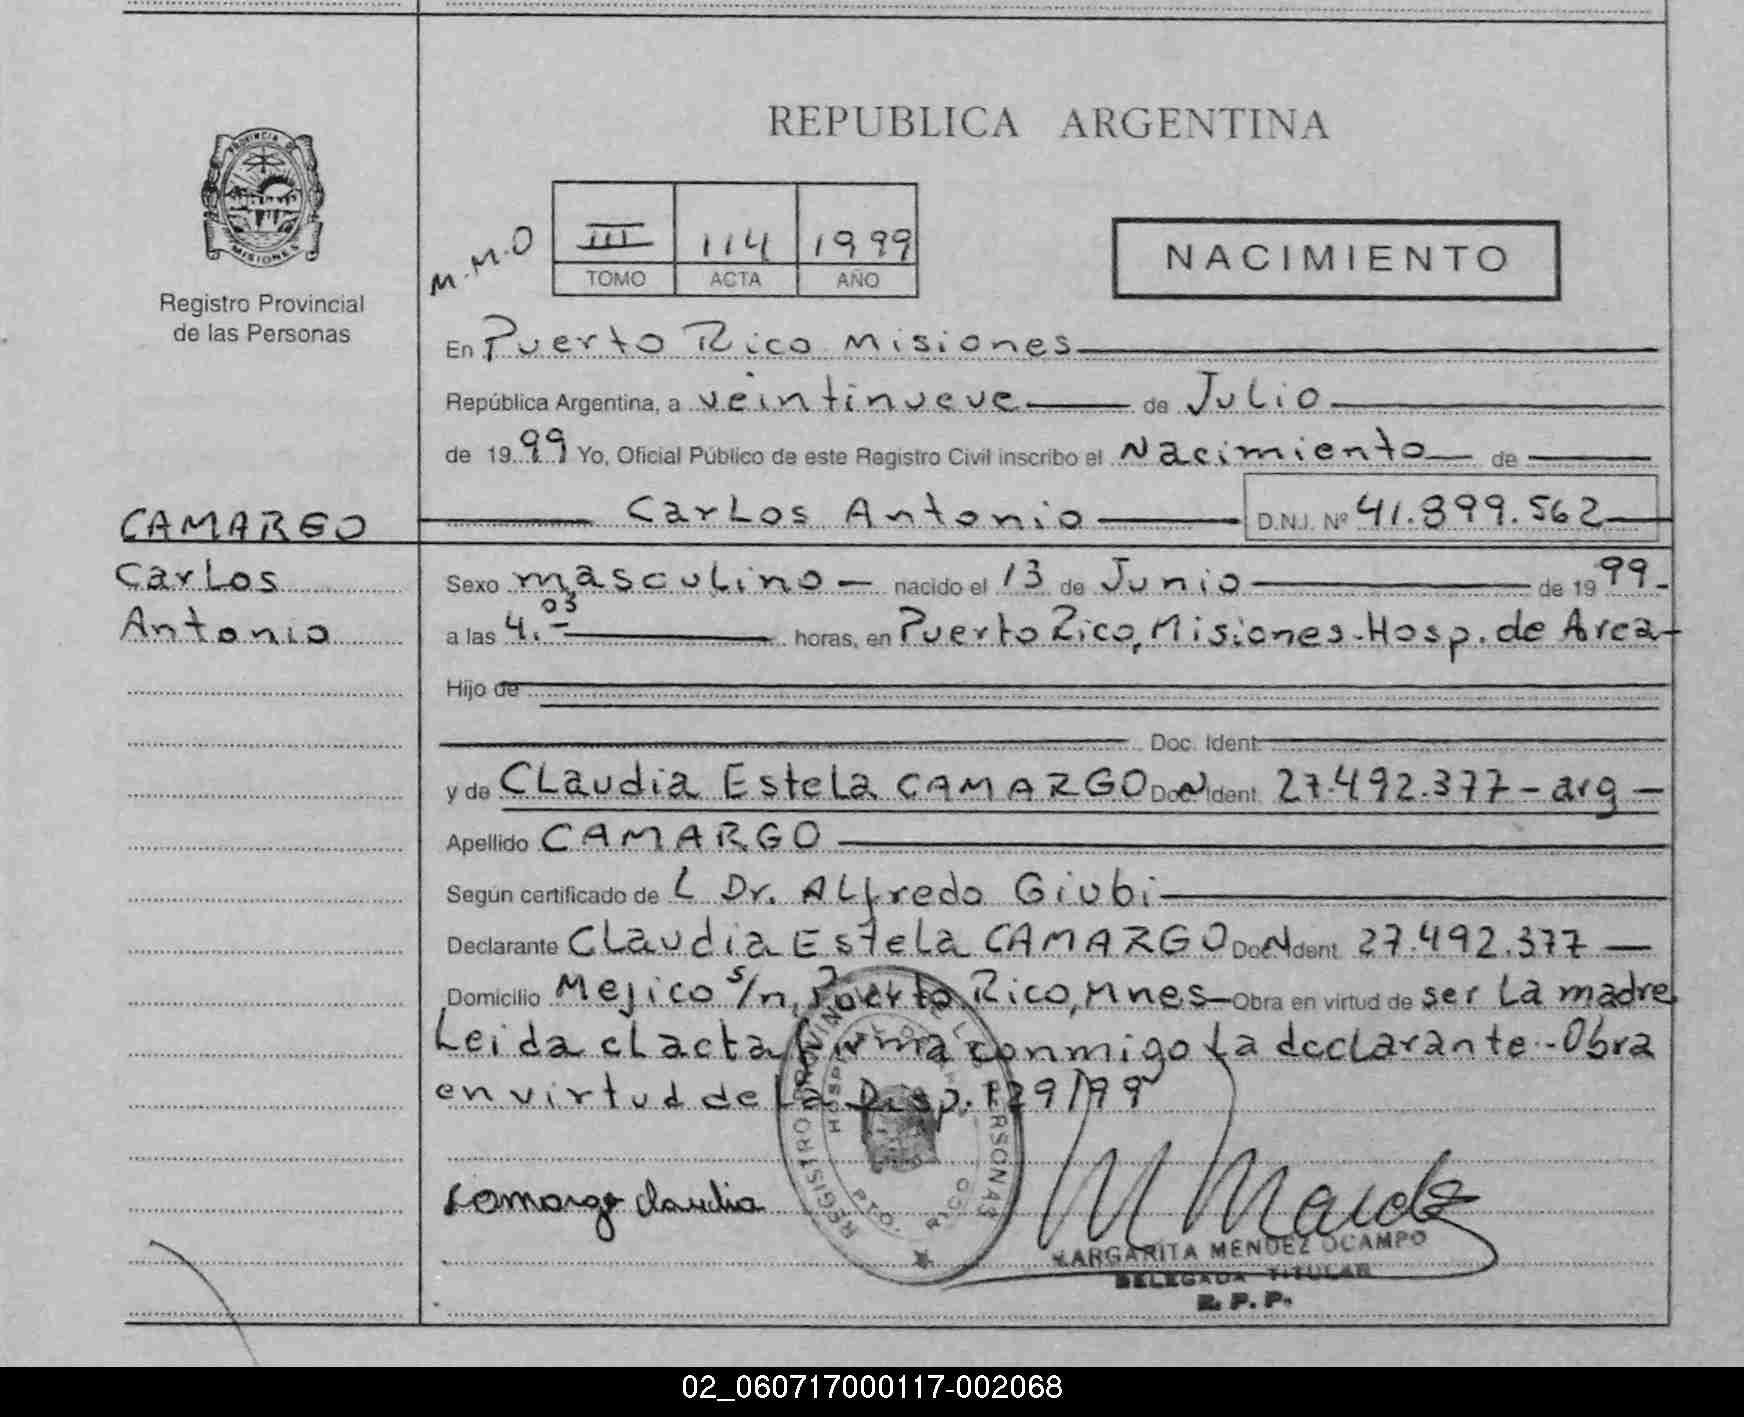 REPUBLICA ARGENTINA
PROVINCIA DE MISIONES
Registro Provincial
de las Personas
M.M.O
III 114 1999
TOMO ACTA AÑO
NACIMIENTO
En Puerto Rico Misiones
República Argentina, a veintinueve de Julio
de 1999 Yo, Oficial Público de este Registro Civil inscribo el Nacimiento de
CAMARGO
Carlos
Antonio
Carlos Antonio D.N.I. Nº 41.899.562
Sexo masculino nacido el 13 de Junio de 1999
a las 4.05 horas, en Puerto Rico, Misiones-Hosp. de Area
Hijo de
Doc. Ident.
y de Claudia Estela CAMARGO Doc. Ident. 27.492.377-arg
Apellido CAMARGO
Según certificado del Dr. Alfredo Giubi
Declarante Claudia Estela CAMARGO Doc. Ident. 27.492.377
Domicilio Mejico s/n, Puerto Rico, Mnes Obra en virtud de ser la madre
Leida el acta firma conmigo la declarante.-Obra
en virtud de la Disp. 129/99
REGISTRO PROVINCIAL DE LAS PERSONAS
PTO. RICO
Camargo Claudia
MARGARITA MENDEZ OCAMPO
DELEGADA TITULAR
R.P.P.
02_060717000117-002068